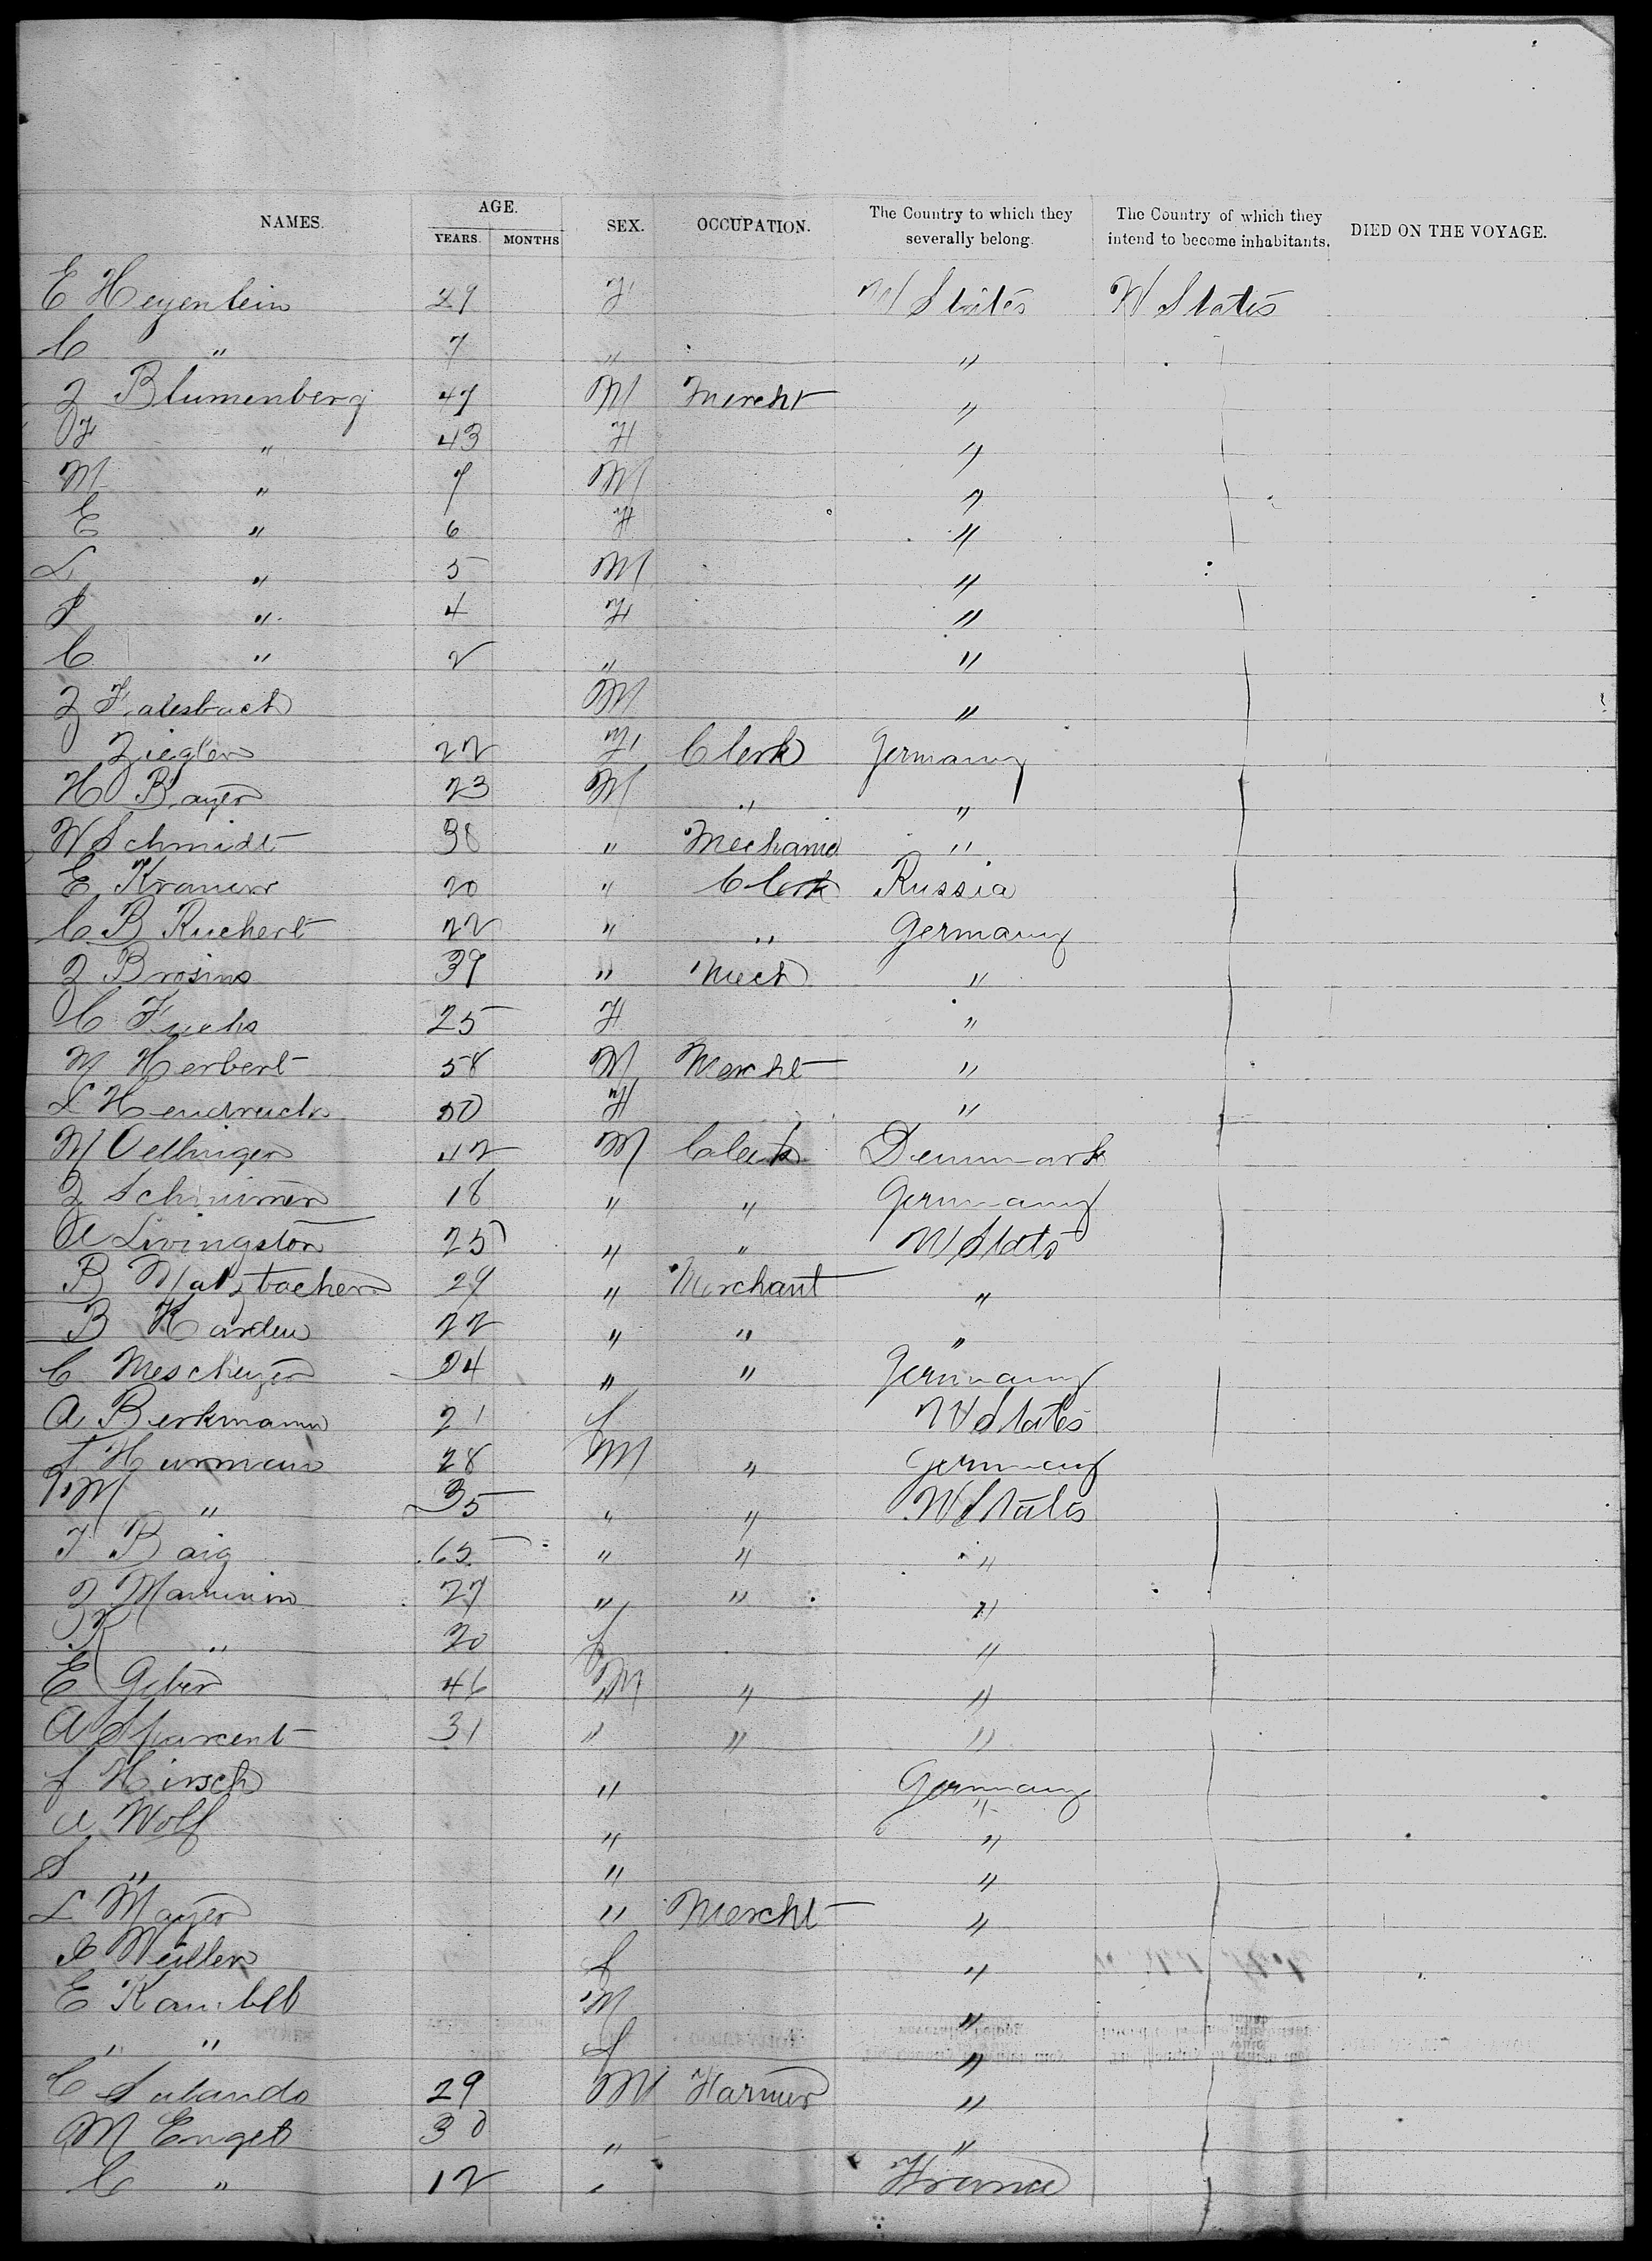 NAMES. AGE. YEARS. MONTHS SEX. OCCUPATION. The Country to which they severally belong. The Country of which they intend to become inhabitants. DIED ON THE VOYAGE.
E Heyenlein 29 F U States U States
C " 7 " "
J Blumenberg 47 M Mercht "
F " 43 F "
M " 7 M "
E " 6 F "
L " 5 M "
S " 4 F "
C " 2 " "
J Falesbach M "
Ziegler 22 F Clerk Germany
H Bayer 23 M " "
W Schmidt 38 " Mechanic "
E Kramer 20 " Clerk Russia
C B Ruchert 22 " " Germany
J Brosins 39 " Mech "
C Fuchs 25 F "
M Herbert 58 M Mercht "
L Hendruck 50 F "
M Oettinger 42 M Clerk Denmark
J Schimmer 18 " " Germany
A Livingston 25 " " U States
B Matzbacher 29 " Merchant "
B Harden 22 " " "
C Mescheyer 24 " " Germany
A Berkmann 21 f U States
Hurmann 28 M " Germany
M " 35 " " U States
J Baig 65 " " "
J Mammin 27 " " "
K " 20 f "
E Geber 46 M " "
A Sparcent 31 " " "
f Hirsch " Germany
A Wolf " "
S " " "
L Mayer " Mercht "
Weiller f "
E M "
" " f "
C Salando 29 M Farmer "
M Engel 30 " "
C " 12 " France